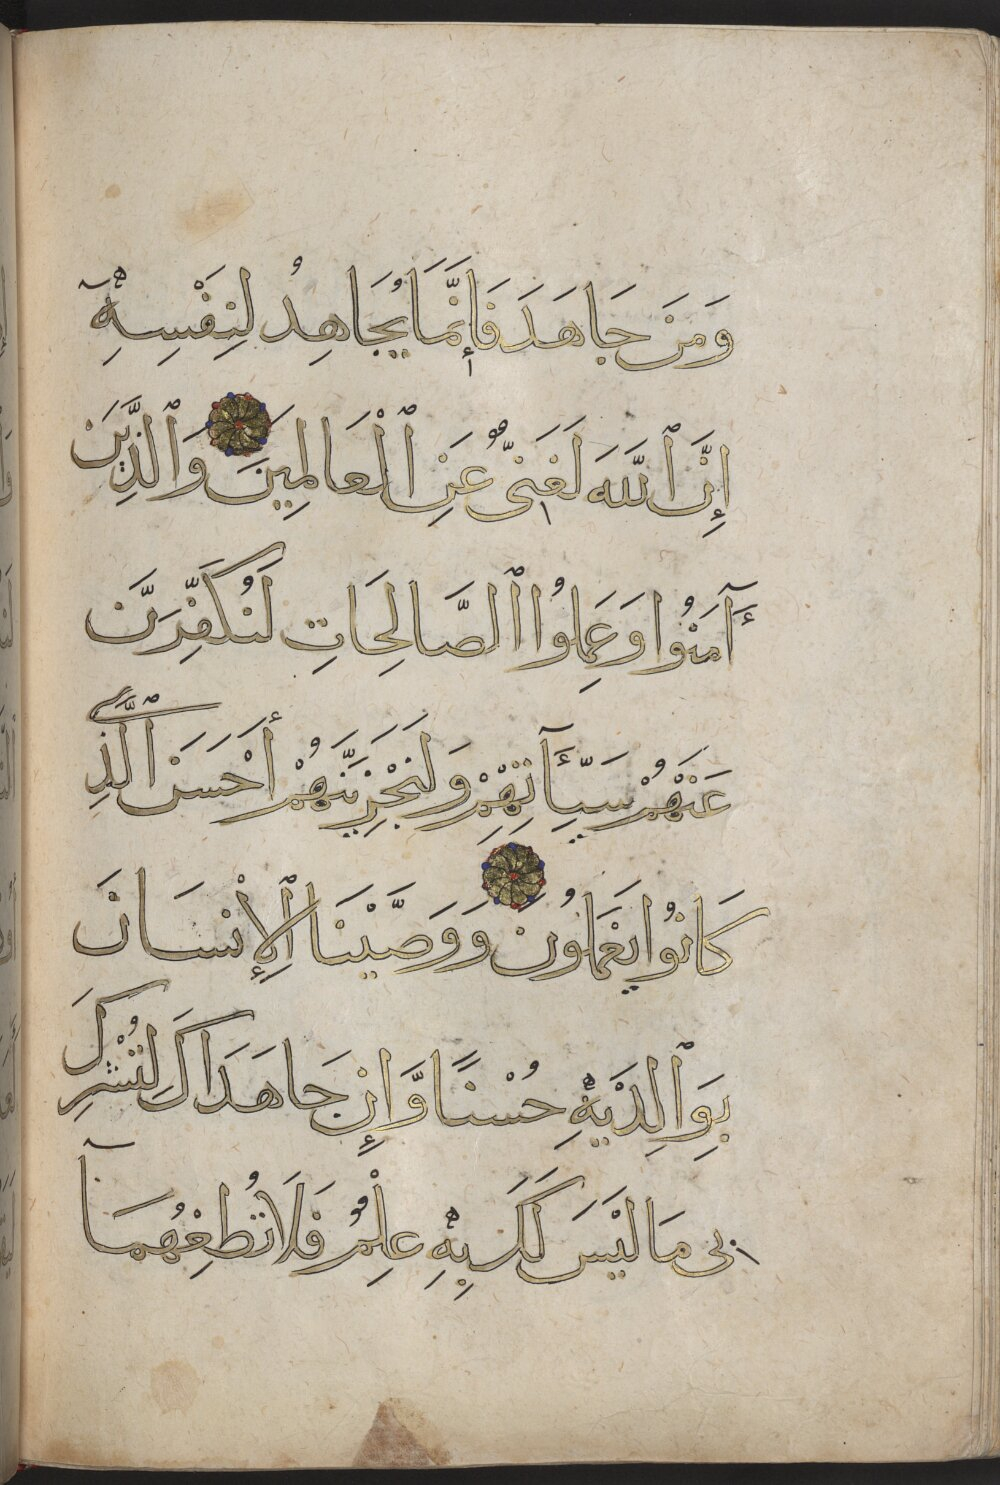 وَمَن جَاهَدَ فَإِنَّمَا يُجَاهِدُ لِنَفْسِهِۦٓ
إِنَّ ٱللَّهَ لَغَنِيٌّ عَنِ ٱلْعَالَمِينَ وَٱلَّذِينَ
ءَامَنُوا وَعَمِلُوا ٱلصَّالِحَاتِ لَنُكَفِّرَنَّ
عَنْهُمْ سَيِّـَٔاتِهِمْ وَلَنَجْزِيَنَّهُمْ أَحْسَنَ ٱلَّذِي
كَانُوا يَعْمَلُونَ وَوَصَّيْنَا ٱلْإِنْسَانَ
بِوَٱلِدَيْهِ حُسْنًا وَّإِن جَاهَدَاكَ لِتُشْرِكَ
بِي مَا لَيْسَ لَكَ بِهِۦ عِلْمٌ فَلَا تُطِعْهُمَآ